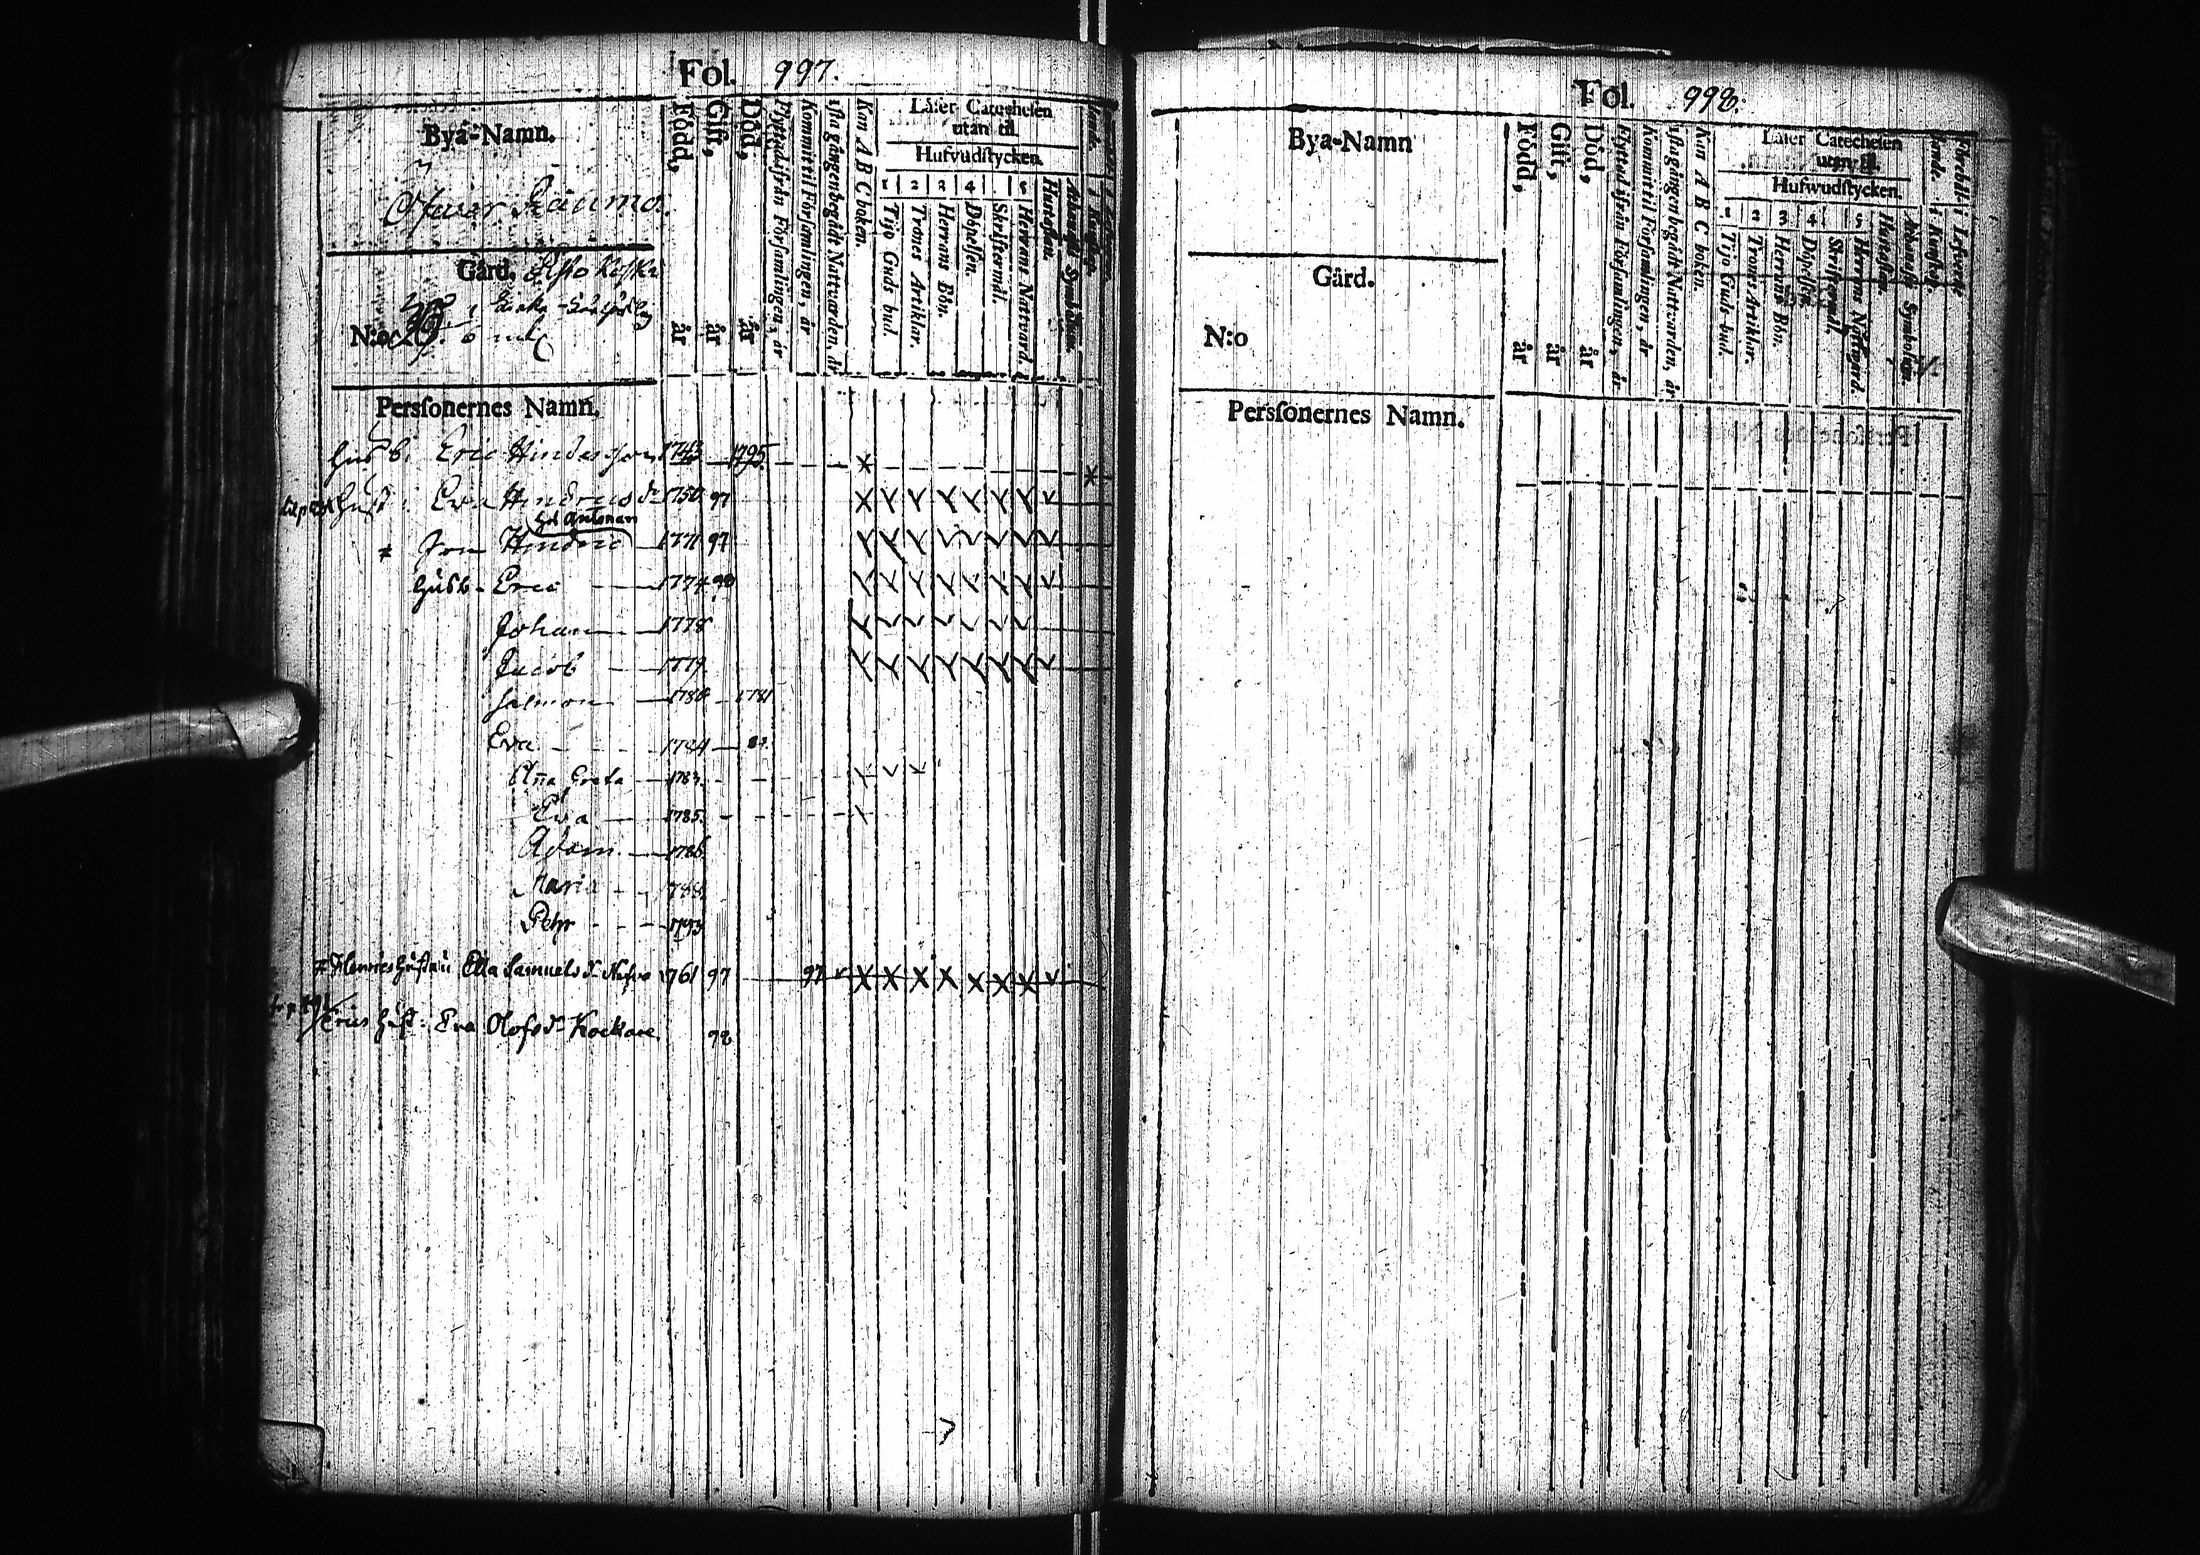 Fol. 997.
Byä-Namn.
Öfwer Räumo.
Gård.
N:o
Född, år
Gift, år
Död, år
Flyttad ifrån Församlingen, år
Kommit til Församlingen, år
1sta gången begådt Nattvarden, år
Kan A B C boken.
Låser Catechesen utan til.
Hufvudstycken.
1 2 3 4 5
Tijo Guds bud.
Trones Artiklar.
Herrans Bön.
Döpelsen.
Skriftermål.
Herrans Nattvard.
Hustaflan.
Athanasii Symbolum.
Personernes Namn.
Husb: Eric Hindersson 1743 1795
Hust: Eva Andersdr 1750 97
Jon Hindric 1771 97
Husb. Eric 1774 98
Johan 1778
Jacob 1779
Salmon 1780 1781
Eva 1784
Aña Greta 1783
Eva 1785
Adam 1786
Maria 1788
Pehr 1793
Henrics hustru Ella Samuelsdr 1761 97 97
Erics Hust: Eva Olofsdr Kockare 98
Fol. 998.
Bya-Namn
Gård.
N:o
Född, år
Gift, år
Död, år
Flyttad ifrån Församlingen, år
Kommit til Församlingen, år
1sta gången begådt Nattvarden, år
Kan A B C boken.
Låser Catechesen utan til.
Hufwudstycken.
1 2 3 4 5
Tijo Guds bud.
Trones Artiklar.
Herrans Bön.
Döpelsen.
Skriftermål.
Herrans Nattvard.
Hustaflan.
Athanasii Symbolum.
Personernes Namn.